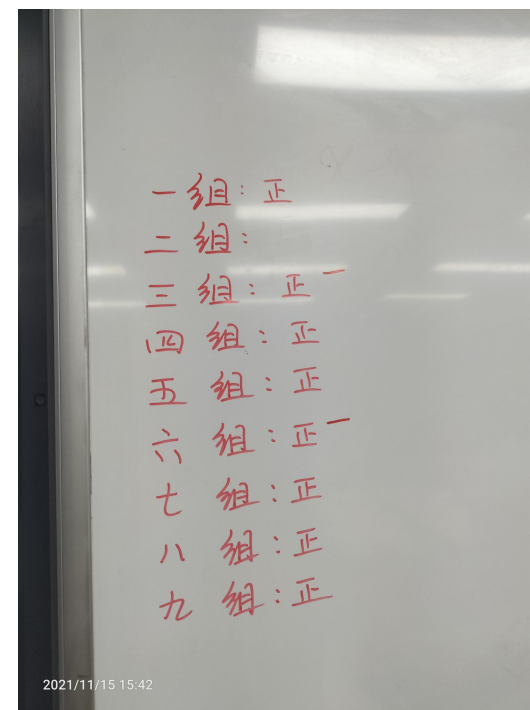 一组：正
二组：
三组：正一
四组：正
五组：正
六组：正一
七组：正
八组：正
九组：正
2021/11/15 15:42